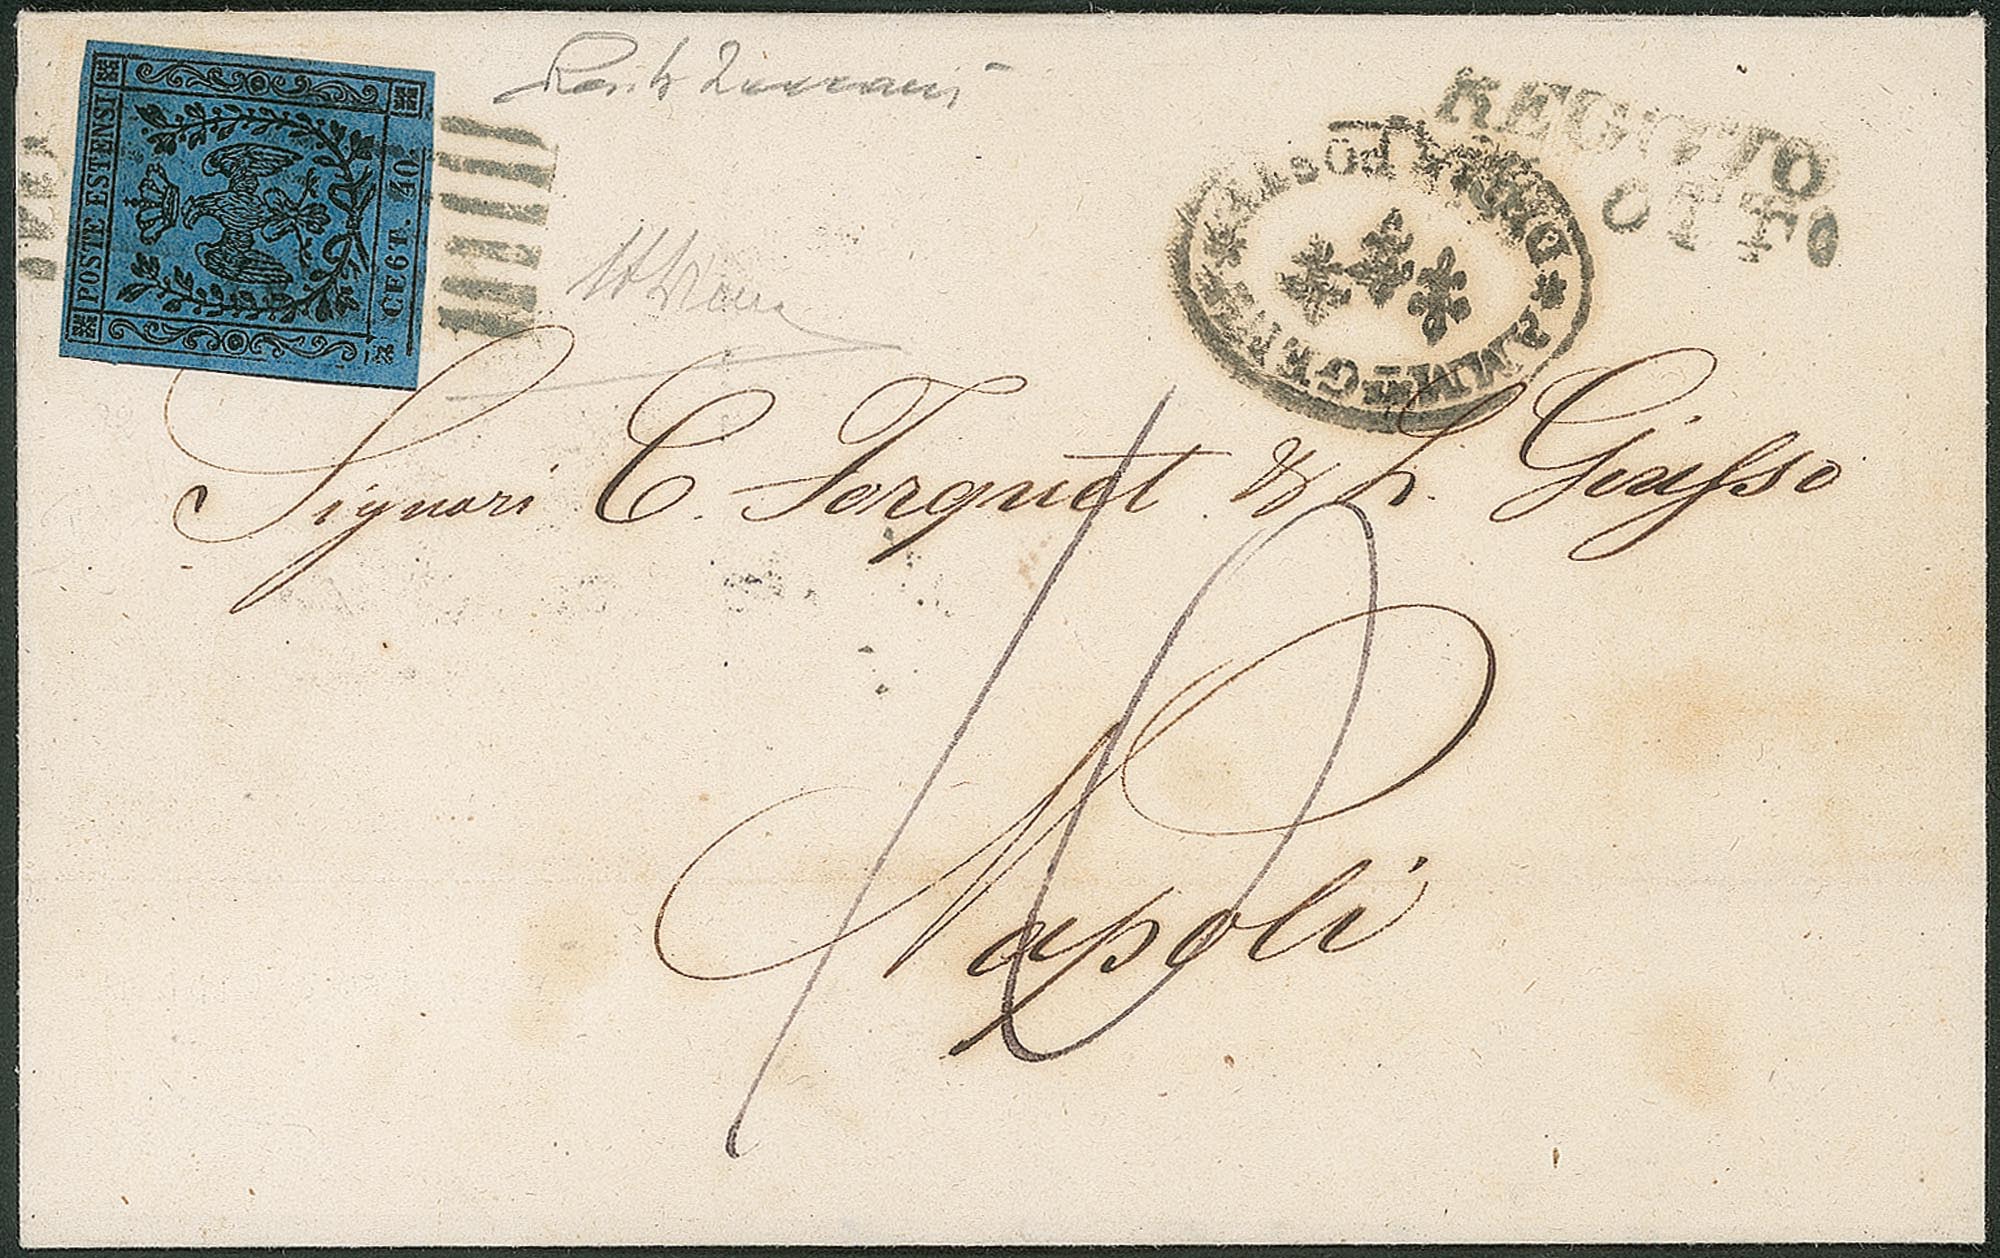 POSTE ESTENSI
CE6T. 40.
REGGIO
OTTO
AMM GEN DELLE POSTE
Signori C. Forquet & L. Giusso
10
Napoli